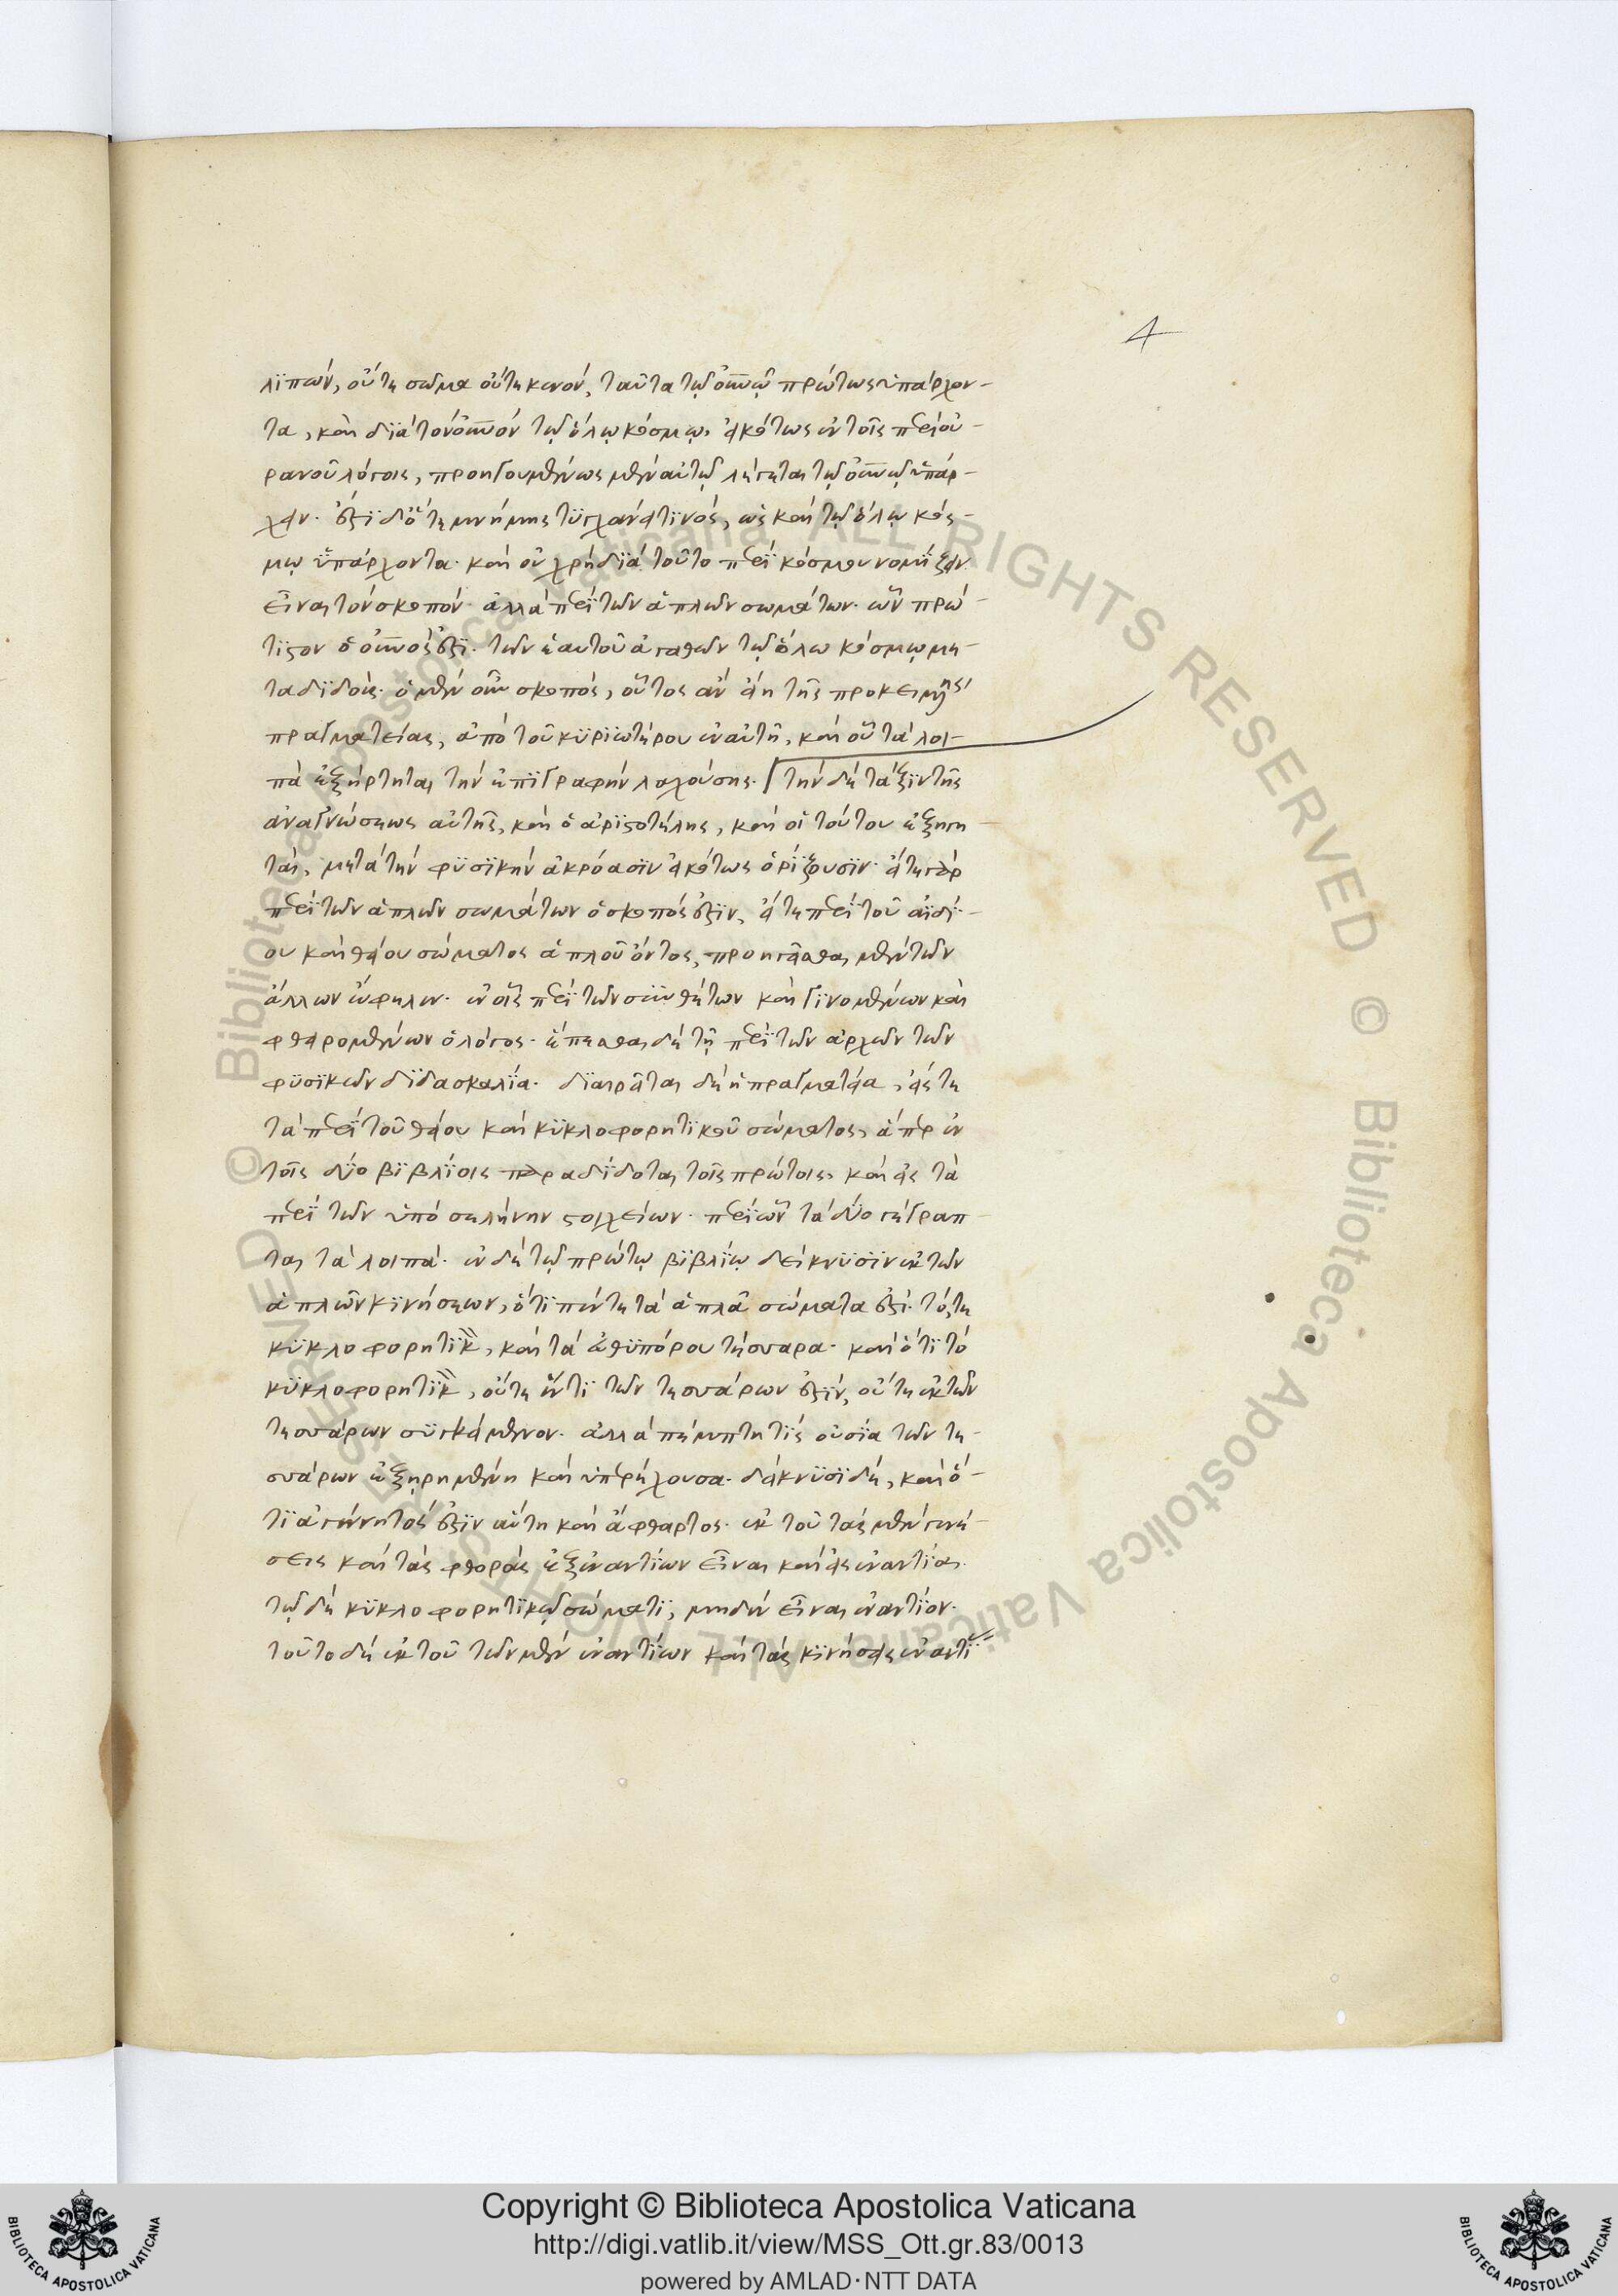 4
λϊπών, οὔτε σῶμα οὔτε κενόν, ταῦτα τῷ οὐνῷ πρώτως ὑπάρχον-
τα, καὶ διὰ τὸν οὐνόν τῷ ὅλῳ κόσμῳ, εἰκότως ἐν τοῖς περὶ οὐ-
ρανοῦ λόγοις, προηγουμένως μὲν αὐτῷ λέγεται τῷ οὐνῷ ὑπάρ-
χειν. ἔστι δ' ὅτε μνήμης τυγχάνει τινός, ὡς καὶ τῷ ὅλῳ κόσ-
μῳ ὑπάρχοντα. καὶ οὐ χρὴ διὰ τοῦτο περὶ κόσμου νομίζειν
εἶναι τὸν σκοπόν. ἀλλὰ περὶ τῶν ἁπλῶν σωμάτων. ὧν πρώ-
τιστον ὁ οὐνός ἐστι. τῶν ἑαυτοῦ ἀγαθῶν τῷ ὅλῳ κόσμῳ με-
ταδιδούς. ὁ μὲν οὖν σκοπός, οὗτος ἂν εἴη τῆς προκειμένης
πραγματείας, ἀπὸ τοῦ κυριωτέρου ἐν αὐτῇ, καὶ οὗ τὰ λοι-
πὰ ἐξήρτηται τὴν ἐπιγραφὴν λαχούσης. τὴν δὲ τάξιν τῆς
ἀναγνώσεως αὐτῆς, καὶ ὁ ἀριστοτέλης, καὶ οἱ τούτου ἐξηγη-
ταὶ, μετὰ τὴν φυσικὴν ἀκρόασιν εἰκότως ὁρίζουσιν. εἴτε γὰρ
περὶ τῶν ἁπλῶν σωμάτων ὁ σκοπός ἐστιν, εἴτε περὶ τοῦ ἀϊδί-
ου καὶ θείου σώματος ἁπλοῦ ὄντος, προηγεῖσθαι μὲν τῶν
ἄλλων ὤφειλεν. ἐν οἷς περὶ τῶν συνθέτων καὶ γινομένων καὶ
φθειρομένων ὁ λόγος. ἕπεσθαι δὲ τῇ περὶ τῶν ἀρχῶν τῶν
φυσικῶν διδασκαλία. διαιρεῖται δὲ ἡ πραγματεία, εἴς τε
τὰ περὶ τοῦ θείου καὶ κυκλοφορητικοῦ σώματος, ἅπερ ἐν
τοῖς δύο βιβλίοις παραδίδοται τοῖς πρώτοις, καὶ εἰς τὰ
περὶ τῶν ὑπὸ σελήνην στοιχείων. περὶ ὧν τὰ δύο γέγραπ-
ται τὰ λοιπά. ἐν δὲ τῷ πρώτῳ βιβλίῳ δείκνυσιν ἐκ τῶν
ἁπλῶν κινήσεων, ὅτι πέντε τὰ ἁπλᾶ σώματα ἐστί. τό, τε
κυκλοφορητικ, καὶ τὰ εὐθυπόρου τέσσαρα. καὶ ὅτι τὸ
κυκλοφορητικ, οὔτε ἕν τι τῶν τεσσάρων ἐστίν, οὔτε ἐκ τῶν
τεσσάρων συγκείμενον. ἀλλὰ πέμπτη τις οὐσία τῶν τε-
σσάρων ἐξῃρημένη καὶ ὑπερέχουσα. δείκνυσι δέ, καὶ ὅ-
τι ἀγέννητός ἐστιν αὕτη καὶ ἄφθαρτος. ἐκ τοῦ τὰς μὲν γενέ-
σεις καὶ τὰς φθορὰς ἐξ ἐναντίων εἶναι καὶ εἰς ἐναντία.
τῷ δὲ κυκλοφορητικῷ σώματι, μηδὲν εἶναι ἐναντίον.
τοῦτο δὲ ἐκ τοῦ τῶν μὲν ἐναντίων καὶ τὰς κινήσεις ἐναντί
Copyright © Biblioteca Apostolica Vaticana
http://digi.vatlib.it/view/MSS_Ott.gr.83/0013
powered by AMLAD·NTT DATA
BIBLIOTECA APOSTOLICA VATICANA
BIBLIOTECA APOSTOLICA VATICANA
© Biblioteca Apostolica Vaticana ALL RIGHTS RESERVED © Biblioteca Apostolica Vaticana ALL RIGHTS RESERVED